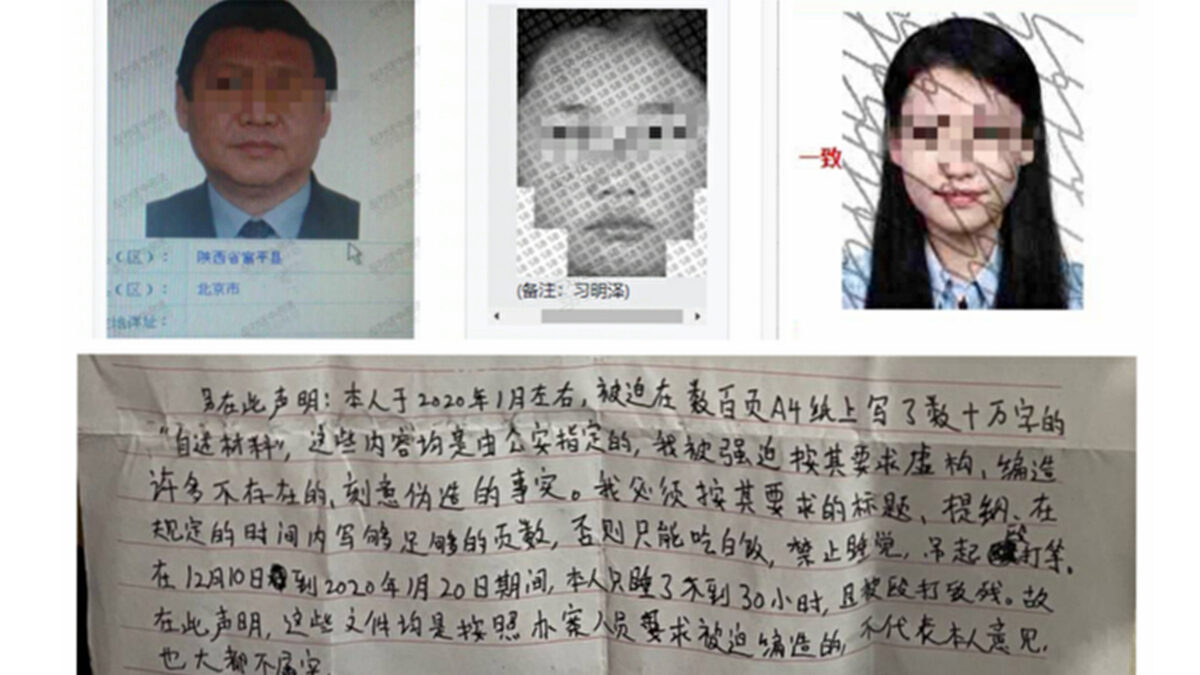 （区）： 陕西省富平县
（区）： 北京市
地详址：
(备注： 习明泽)
一致
另在此声明：本人于2020年1月左右，被迫在数百页A4纸上写了数十万字的
“自述材料”，这些内容均是由公安指定的，我被强迫按其要求虚构、编造
许多不存在的、刻意伪造的事实。我必须按其要求的标题、提纲、在
规定的时间内写够足够的页数，否则只能吃白饭，禁止睡觉，吊起殴打等。
在12月10日到2020年1月20日期间，本人只睡了不到30小时，且被殴打致残。故
在此声明，这些文件均是按照办案人员要求被迫编造的，不代表本人意见，
也大都不属实